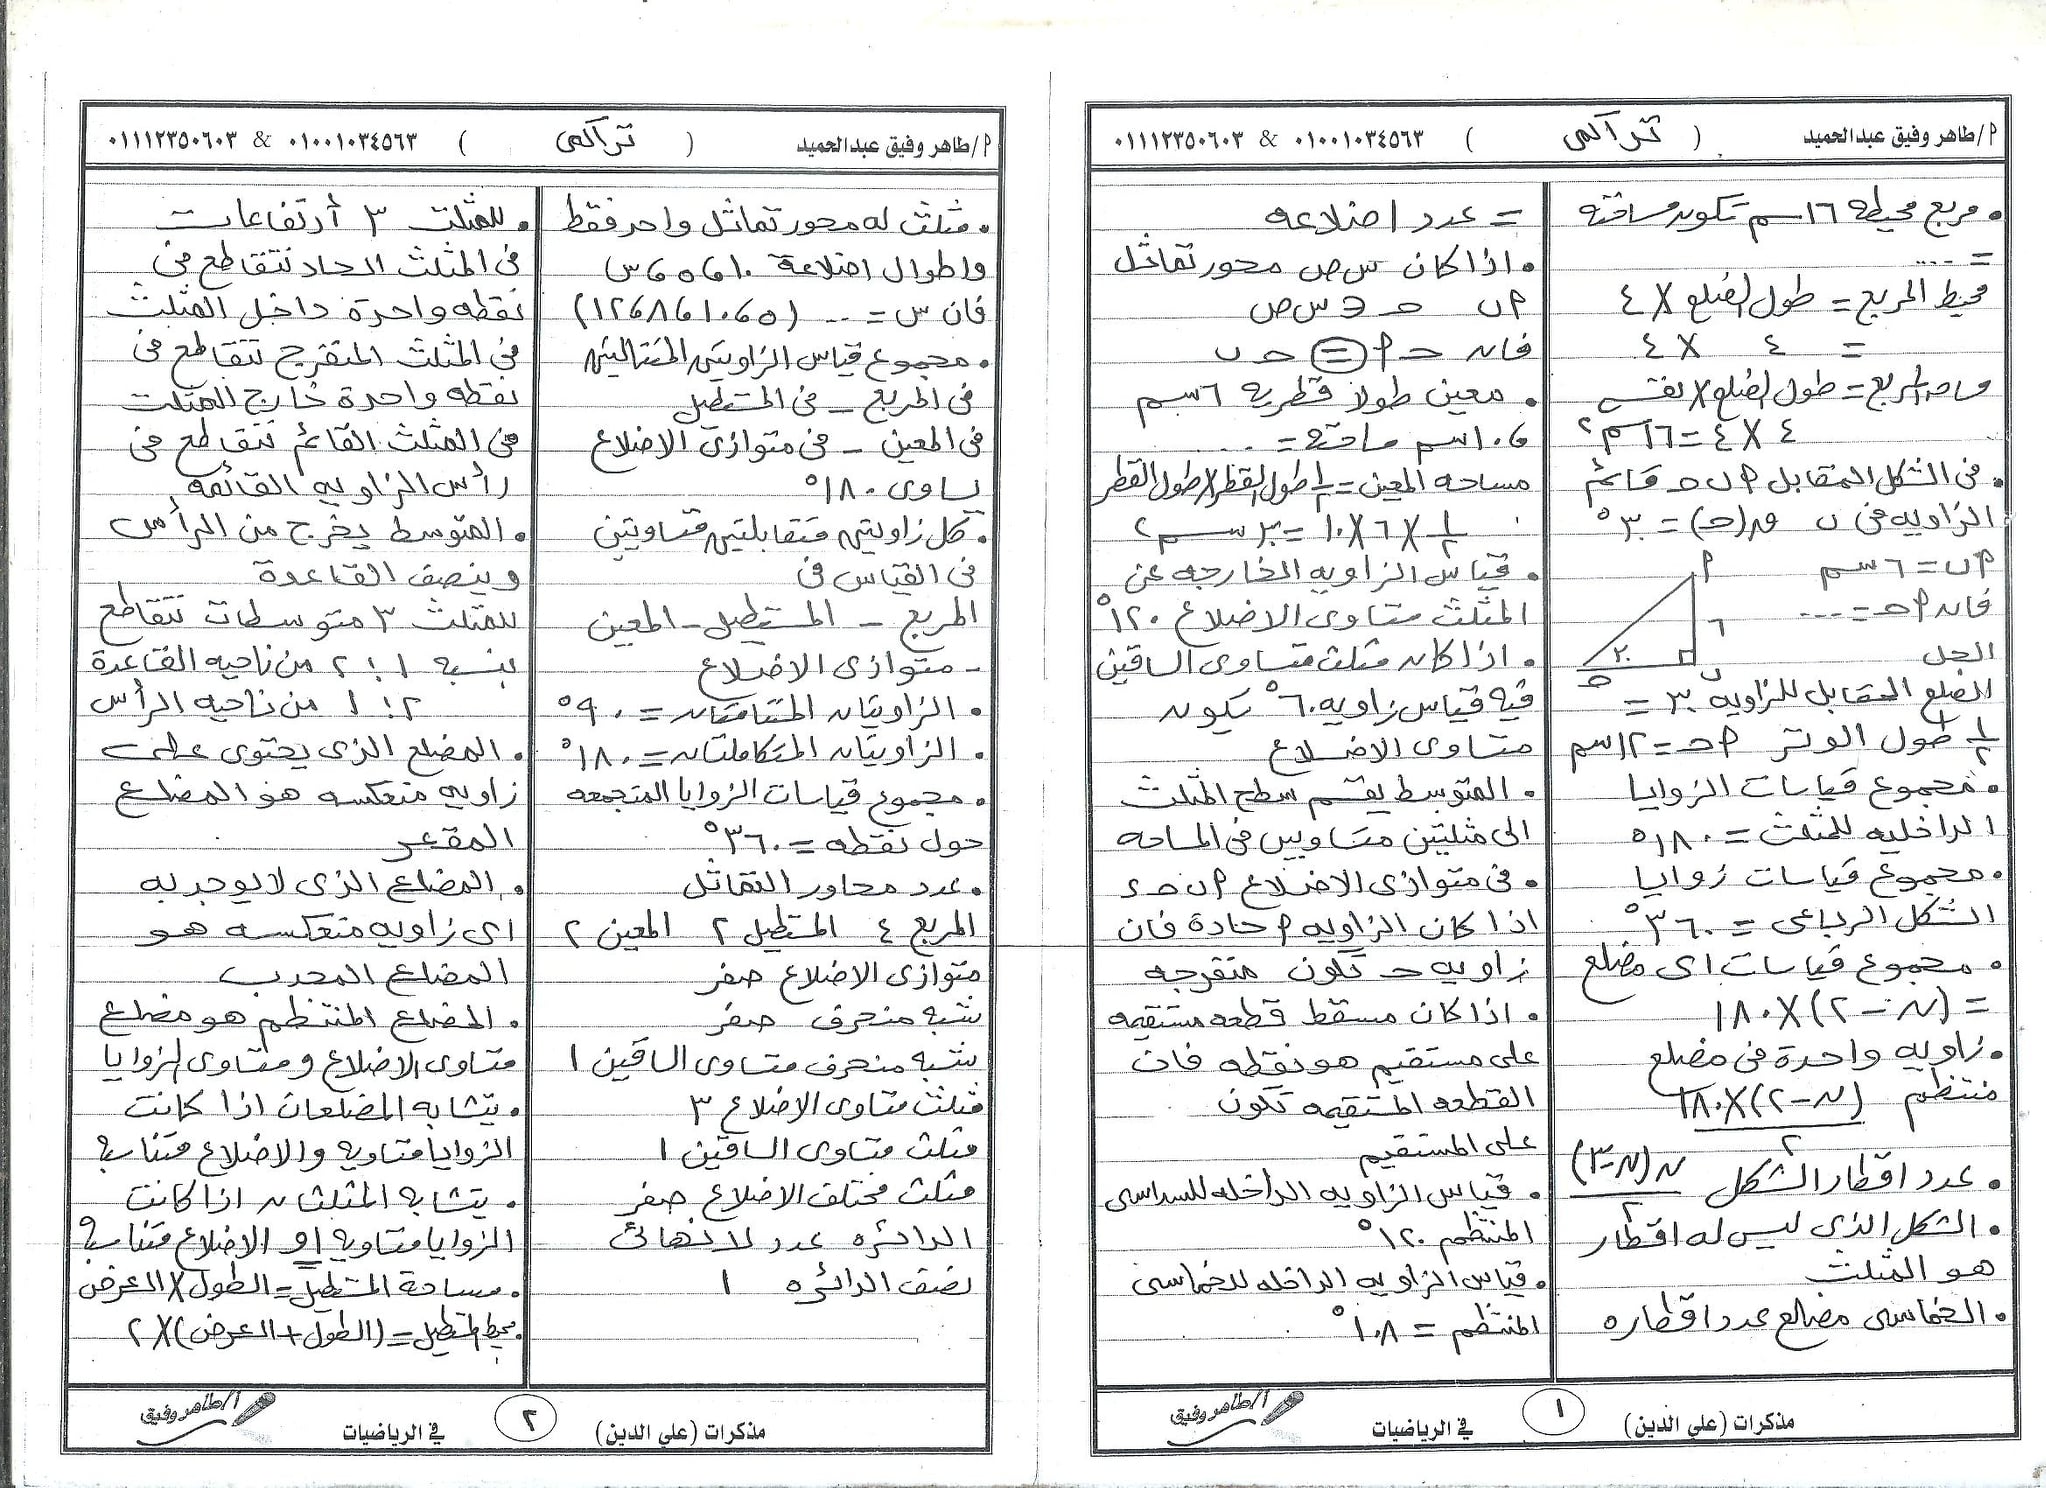 م/ طاهر وفيق عبدالحميد ( تراكمى ) ٠١٠٠١٠٣٤٥٦٣ & ٠١١١٢٣٥٠٦٠٣
• مربع محيطه ١٦سم تكون مساحته
= ....
محيط المربع = طول الضلع X ٤
= ٤ X ٤
مساحه المربع = طول الضلع X نفسه
٤ X ٤ = ١٦سم٢
• فى الشكل المقابل ٩ ب ح قائم
الزاويه فى ب ق(ح) = ٣٠°
٩ب = ٦سم
فان ٩ح = ....
٩
٦
٣٠
ح
ب
الحل
الضلع المقابل للزاويه ٣٠ =
١/٢ طول الوتر ٩ح = ١٢سم
• مجموع قياسات الزوايا
الداخليه للمثلث = ١٨٠°
• مجموع قياسات زوايا
الشكل الرباعى = ٣٦٠°
• مجموع قياسات اى مضلع
= (ن - ٢) X ١٨٠
• زاويه واحدة فى مضلع
منتظم (ن - ٢) X ١٨٠
ن
• عدد اقطار الشكل ن(ن - ٣)
٢
• الشكل الذى ليس له اقطار
هو المثلث
• الخماسى مضلع عدد اقطاره
= عدد اضلاعه
• اذا كان س ص محور تماثل
٩ب ح و س ص
فان ح ٩ = ح ب
• معين طولا قطريه ٦سم
، ١٠سم مساحته = ....
مساحه المعين = ١/٢ طول القطر X طول القطر
١/٢ X ٦ X ١٠ = ٣٠ سم٢
• قياس الزاويه الخارجه عن
المثلث متساوى الاضلاع ١٢٠°
• اذا كان مثلث متساوى الساقين
فيه قياس زاويه ٦٠° يكون
متساوى الاضلاع
• المتوسط يقسم سطح المثلث
الى مثلثين متساويين فى المساحه
• فى متوازى الاضلاع ٩ ب ح ء
اذا كان الزاويه ٩ حادة فان
زاويه ح تكون منفرجه
• اذا كان مسقط قطعه مستقيمه
على مستقيم هو نقطه فان
القطعه المستقيمه تكون
على المستقيم
• قياس الزاويه الداخله للسداسى
المنتظم ١٢٠°
• قياس الزاويه الداخله للخماسى
المنتظم = ١٠٨°
مذكرات (على الدين) ١ في الرياضيات أ/طاهر وفيق
م/ طاهر وفيق عبدالحميد ( تراكمى ) ٠١٠٠١٠٣٤٥٦٣ & ٠١١١٢٣٥٠٦٠٣
• مثلث له محور تماثل واحد فقط
واطوال اضلاعة ١٠، ٥، س
فان س = ... (٥، ١٠، ٨، ١٢)
• مجموع قياس الزاويتين المتتاليتين
فى المربع - فى المستطيل
فى المعين - فى متوازى الاضلاع
يساوى ١٨٠°
• كل زاويتين متقابلتين متساويتين
فى القياس فى
المربع - المستطيل - المعين
- متوازى الاضلاع
• الزاويتان المتتامتان = ٩٠°
• الزاويتان المتكاملتان = ١٨٠°
• مجموع قياسات الزوايا المتجمعه
حول نقطه = ٣٦٠°
• عدد محاور التماثل
المربع ٤ المستطيل ٢ المعين ٢
متوازى الاضلاع صفر
شبه منحرف صفر
شبه منحرف متساوى الساقين ١
مثلث متساوى الاضلاع ٣
مثلث متساوى الساقين ١
مثلث مختلف الاضلاع صفر
الدائره عدد لا نهائى
نصف الدائره ١
• للمثلث ٣ أرتفاعات
فى المثلث الحاد تتقاطع فى
نقطه واحدة داخل المثلث
فى المثلث المنفرج تتقاطع فى
نقطه واحدة خارج المثلث
فى المثلث القائم تتقاطع فى
رأس الزاويه القائمه
• المتوسط يخرج من الرأس
وينصف القاعدة
للمثلث ٣ متوسطات تتقاطع
بنسبه ١ : ٢ من ناحيه القاعدة
٢ : ١ من ناحيه الرأس
• المضلع الذى يحتوى على
زاويه منعكسه هو المضلع
المقعر
• المضلع الذى لا يوجد به
اى زاويه منعكسه هو
المضلع المحدب
• المضلع المنتظم هو مضلع
متساوى الاضلاع ومتساوى الزوايا
• يتشابه المضلعان اذا كانت
الزوايا متساويه والاضلاع متناسبه
• يتشابه المثلثان اذا كانت
الزوايا متساويه او الاضلاع متناسبه
• مساحة المستطيل = الطول X العرض
• محيط المستطيل = (الطول + العرض) X ٢
مذكرات (على الدين) ٢ في الرياضيات أ/طاهر وفيق